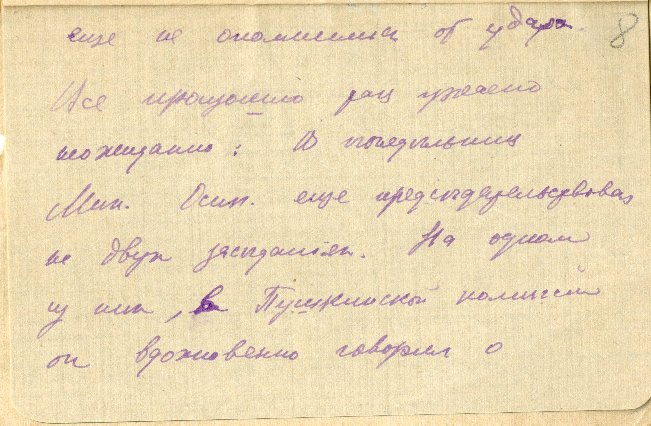 еще не опомнились от удара.
8
Все произошло так ужасно
неожиданно: В понедельник
Мих. Осип. еще председательствовал
на двух заседаниях. На одном
из них, в Пушкинской комиссии
он вдохновенно говорил о